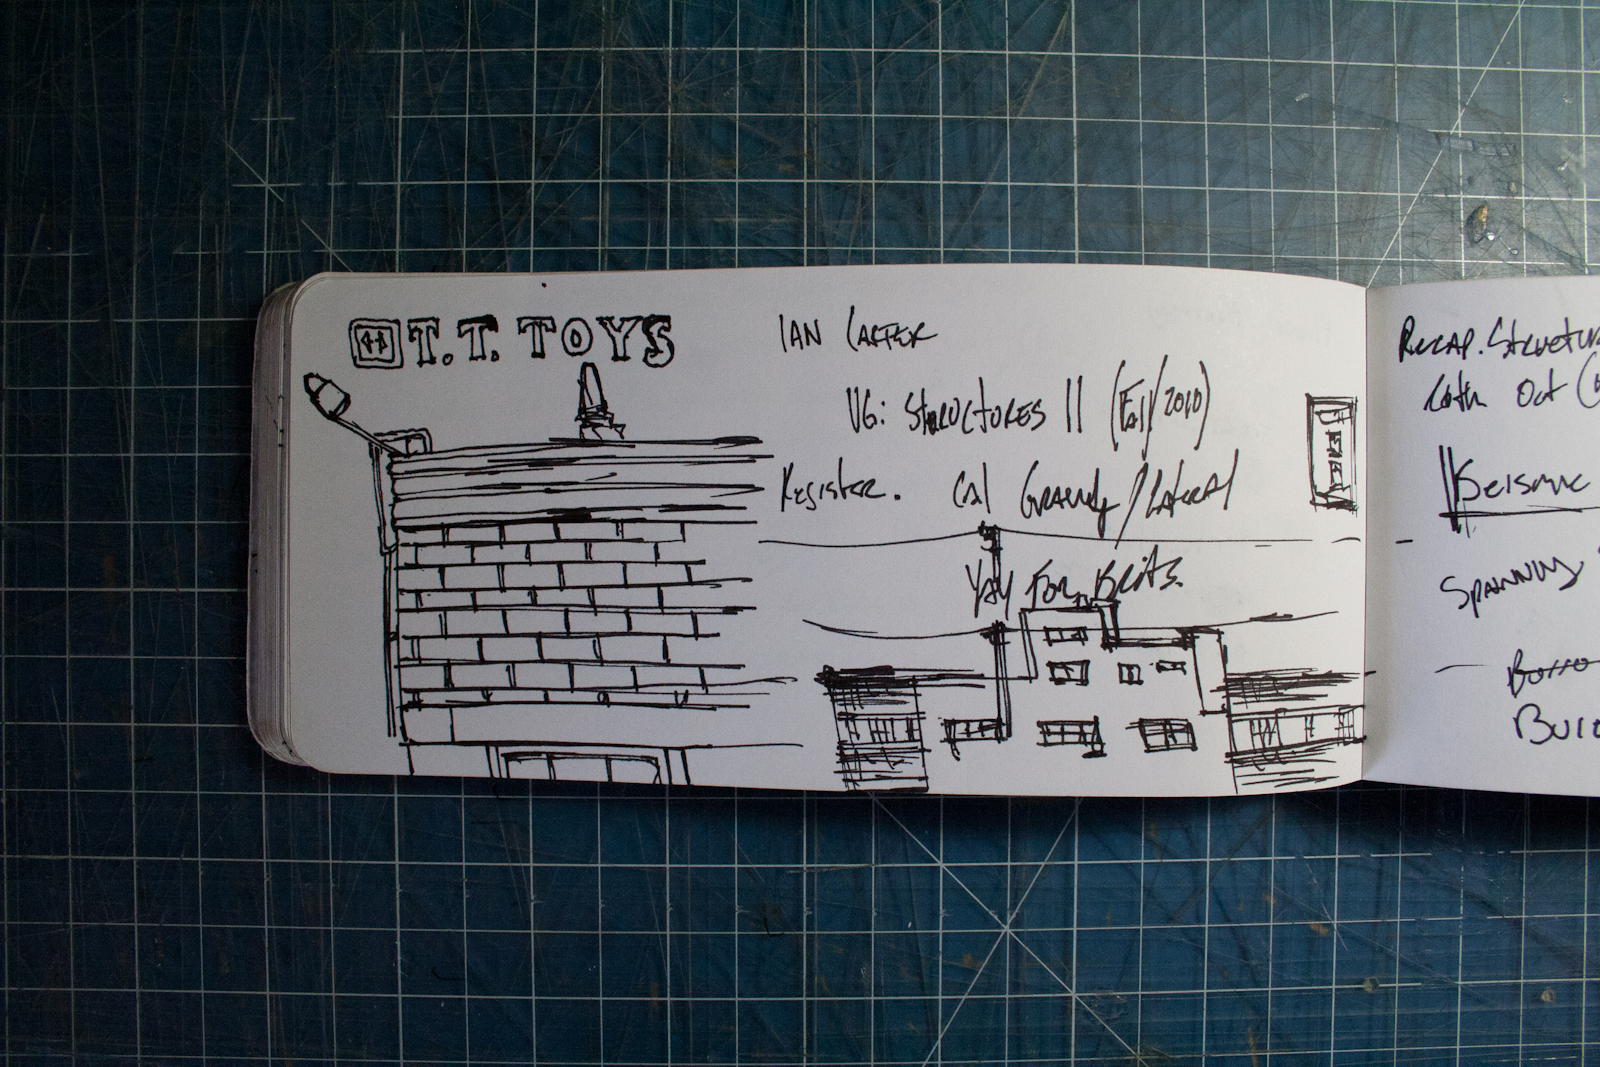 T.T. TOYS
IAN CARTER
UG: STRUCTURES II (FALL/2010)
Register. Gravity/Lateral
YAY FOR BRITS.
RECAP. STRUCTUR
Oct
SEISMIC
SPANNING
BUIL